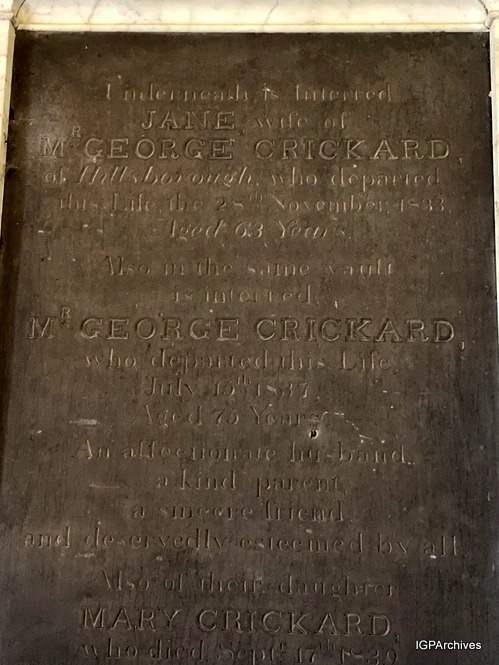 Underneath is Interred
JANE, wife of
Mʳ GEORGE CRICKARD,
of Hillsborough, who departed
this Life, the 28ᵗʰ November, 1833,
Aged 63 Years.
Also in the same vault
is interred,
Mʳ GEORGE CRICKARD,
who departed this Life,
July 15ᵗʰ 1837,
Aged 75 Years.
An affectionate husband,
a kind parent,
a sincere friend,
and deservedly esteemed by all.
Also of their daughter
MARY CRICKARD,
who died Septʳ 17ᵗʰ 1839
IGPArchives